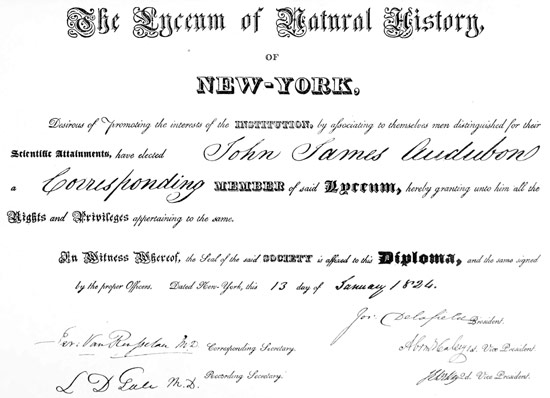 The Lyceum of Natural History,
OF
NEW-YORK,
Desirous of promoting the interests of the INSTITUTION, by associating to themselves men distinguished for their
Scientific Attainments, have elected John James Audubon
a Corresponding MEMBER of said Lyceum, hereby granting unto him all the
Rights and Privileges appertaining to the same.
In Witness Whereof, the Seal of the said SOCIETY is affixed to this Diploma, and the same signed
by the proper Officers. Dated New-York, this 13 day of January 1824.
Jos. Delafield President.
Jer. Van Rensselaer M.D. Corresponding Secretary.
1d. Vice President.
L D Gale M.D. Recording Secretary.
2d. Vice President.